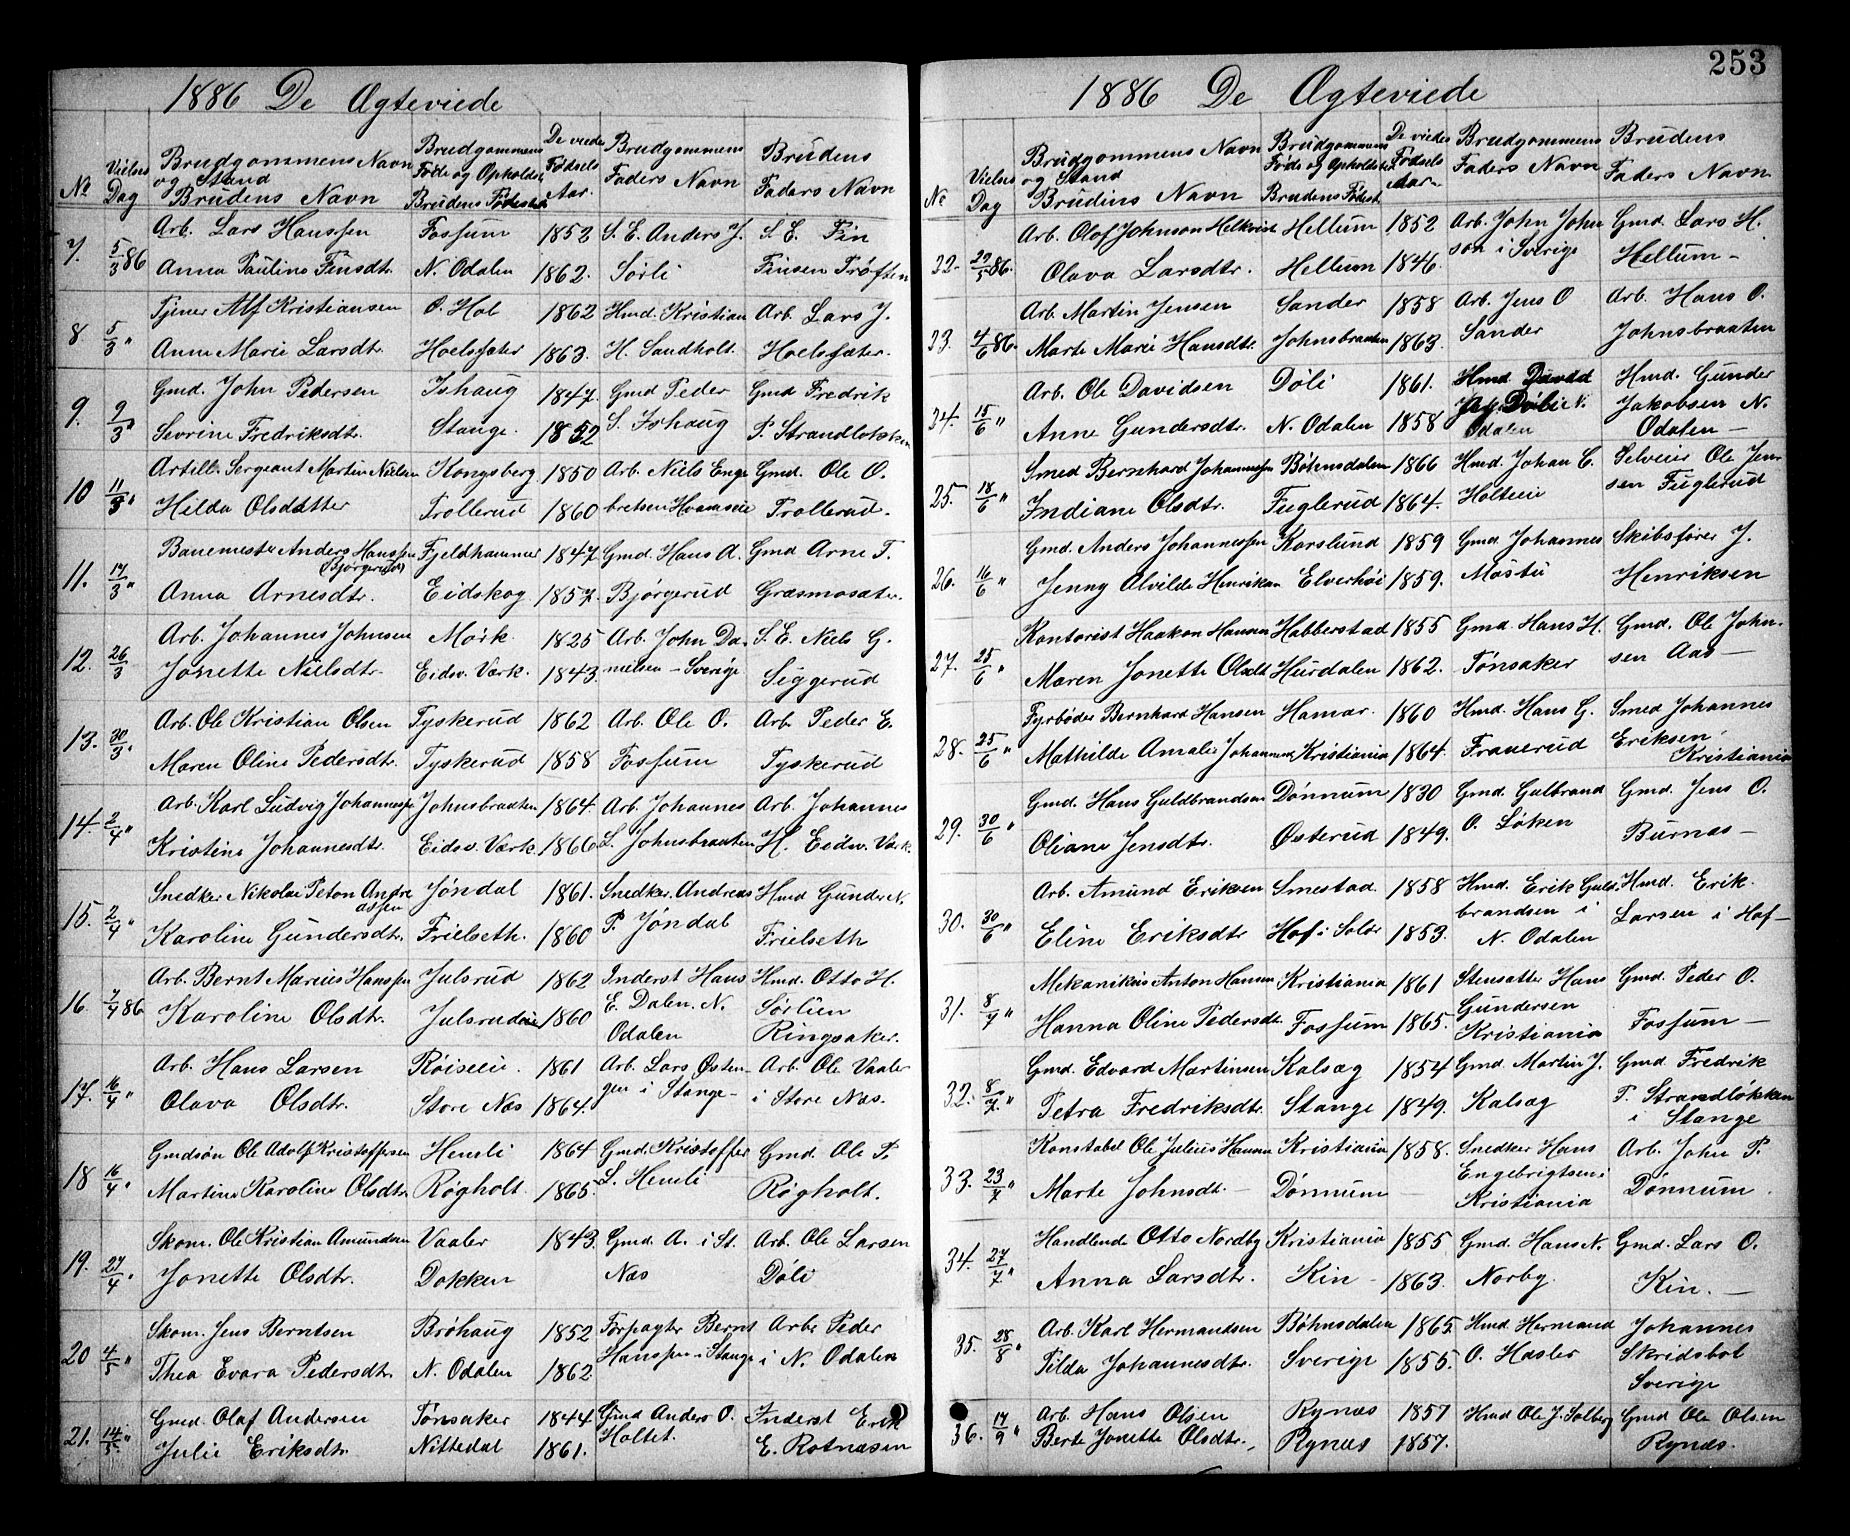 253
1886 De Ægteviede
No
Vielses Dag
Brudgommens Navn og Stand
Brudens Navn
Brudgommens Føde og Opholdst.
Brudens Fødested
De viedes Fødsels Aar.
Brudgommens Faders Navn
Brudens Faders Navn
7. 5/3 86 Arb. Lars Hanssen Fossum 1852 S. E. Anders J. S. E. Fin
Anna Pauline Finsdtr. N. Odalen 1862. Sørli Finsen Trøften
8 5/3 " Tjener Alf Kristiansen O. Hol 1862 Hmd. Kristian Arb. Lars J.
Anne Marie Larsdtr. Hoelsfæter 1863. H. Sandholt. Hoelsfæter.
9. 9/3 " Gmd. John Pedersen Ishaug 1847. Gmd Peder Gmd Fredrik
Sevrine Fredriksdtr. Stange. 1852 S. Ishaug P. Strandløkken
10 11/3 " Artill. Sergeant Martin Nielsen Kongsberg 1850 Arb. Niels Enge Gmd. Ole O.
Hilda Olsdatter Trollerud 1860 bretsen Hvamseie Trollerud.
11. 17/3 " Banemester Anders Hanssen Fjeldhammer 1847. Gmd. Hans A. Gmd Arne T.
(Bjørgerud)
Anna Arnesdtr. Eidskog 1857. Bjørgerud Græsmosæter.
12. 26/3 Arb. Johannes Johnsen Mørk. 1825 Arb. John Da S. E. Niels G.
Jonette Nielsdtr. Eidsv. Værk. 1843. nielsen - Sverige Siggerud
13. 30/3 " Arb. Ole Kristian Olsen Tyskerud 1862 Arb. Ole O. Arb. Peder E.
Maren Oline Pedersdtr. Tyskerud 1858 Fossum Tyskerud
14. 2/4 " Arb. Karl Ludvig Johannessen Johnsbraaten 1864. Arb. Johannes Arb. Johannes
Kristine Johannesdtr. Eidsv. Værk. 1866 L. Johnsbraaten H. Eidsv. Værk.
15. 2/4 " Snedker Nikolai Peton Andre Jøndal 1861. Snedker. Andreas Hmd Gunder N.
assen
Karoline Gundersdtr. Frielseth. 1860 P. Jøndal Frielseth
16. 7/4 86 Arb. Bernt Marius Hanssen Julsrud 1862 Inderst Hans Hmd. Otto H.
Karoline Olsdtr. Julsrudeie 1860 E. Dalen. N. Sørlien
Odalen Ringsaker.
17. 16/4 " Arb. Hans Larsen Røiseie. 1861 Arb. Lars Østen- Arb. Ole Vaaler
Olava Olsdtr. Store Næs 1864. gen i Stange - i Store Næs.
18 16/4 " Gmdsøn Ole Adolf Kristoffersen Hemli 1864 Gmd. Kristoffer Gmd. Ole P.
Martine Karoline Olsdtr. Røgholt. 1865. L. Hemli Røgholt.
19. 27/4 " Skom. Ole Kristian Amundsen Vaaler 1843. Gmd. A. i St. Arb. Ole Larsen
Jonette Olsdtr. Dokken Næs Døli
20 4/5 " Skom. Jens Berntsen Brøhaug 1852 Forpagter Bernt Arb. Peder
Thea Evara Pedersdtr. N. Odalen 1862. Hanssen i Stange i N. Odalen
21. 14/5 " Gmd. Olaf Andersen Tønsaker 1844 Gmd Anders O. Inderst Erik
Julie Eriksdtr. Nittedal 1861. Holtet. E. Rotnæsen
1886 De Ægteviede
No
Vielses Dag
Brudgommens Navn og Stand
Brudens Navn
Brudgommens Føde og Opholdste
Brudens Fødest.
De viedes Fødsels Aar.
Brudgommens Faders Navn
Brudens Faders Navn
22. 29/5 86. Arb. Olof Johnson Helkvist Hellum 1852 Arb. John John Gmd. Lars H.
Olava Larsdtr. Hellum 1846. son i Sverige Hellum -
23. 4/6 86. Arb. Martin Jensen Sander 1858 Arb. Jens O Arb. Hans O.
Marte Marie Hansdtr. Johnsbraaten 1863. Sander Johnsbraaten
24. 15/6 " Arb. Ole Davidsen Døli 1861. Hmd David Hmd. Gunder
Anne Gundersdtr. N. Odalen 1858 Døli N. Jakobsen N.
Odalen Odalen -
25. 18/6 " Smed Bernhard Johannessen Bøhnsdalen 1866 Hmd. Johan C. Selveier Ole Jen
Indiane Olsdtr. Fuglerud 1864. Holteeie sen Fuglerud
26. 16/6 " Gmd. Anders Johannessen Korslund 1859 Gmd Johannes Skibsfører J.
Jenny Alvilde Henriksen Elverhøi 1859. Mostu Henriksen
27. 25/6 " Kontorist Haakon Hansen Habberstad 1855 Gmd. Hans H. Gmd. Ole John.
Maren Jonette Olsdt Hurdalen 1862. Tønsaker sen Aas -
28. 25/6 " Fyrbøder Bernhard Hansen Hamar. 1860 Hmd. Hans G. Smed Johannes
Mathilde Amalie Johannsen Kristiania 1864. Frauerud Eriksen
Kristiania
29. 30/6 " Gmd. Hans Guldbrandsen Dønnum 1830 Gmd. Gulbrand Gmd. Jens O.
Oliane Jensdtr. Østerud 1849. O. Løken Burnæs -
30. 30/6 " Arb. Amund Eriksen Smestad. 1858 Hmd. Erik Guld. Hmd. Erik.
Eline Eriksdtr Hof i Solør 1853. brandsen i Larsen i Hof -
N. Odalen
31. 8/7 " Mekanikus Anton Hansen Kristiania 1861 Stensætter Hans Gmd. Peder O.
Hanna Oline Pedersdt. Fossum 1865. Gundersen Fossum -
Kristiania
32. 8/7 " Gmd. Edvard Martinsen Kalsæg 1854 Gmd. Martin J. Gmd Fredrik
Petra Fredriksdtr. Stange 1849. Kalsæg P. Strandløkken
i Stange
33. 23/7 " Konstabel Ole Julius Hansen Kristiania 1858. Snedker Hans Arb. John P.
Marte Johnsdt. - Dønnum - Engebrigtsen i Dønnum.
Kristiania
34. 27/7 " Handlende Otto Nordby Kristiania 1855 Gmd. Hans N. Gmd. Lars O.
Anna Larsdtr. Kin - 1863. Norby. Kin. -
35. 28/8 " Arb. Karl Hermandsen Bøhnsdalen 1865. Hmd Hermand Johannes
Tilda Johannesdtr. Sverige 1855. O. Hasler Skridsbol
Sverige
36. 17/9 " Arb. Hans Olsen Rynæs 1857 Hmd Ole J. Solberg Gmd Ole Olsen
Berte Jonette Olsdtr. Rynæs 1857. Rynæs.